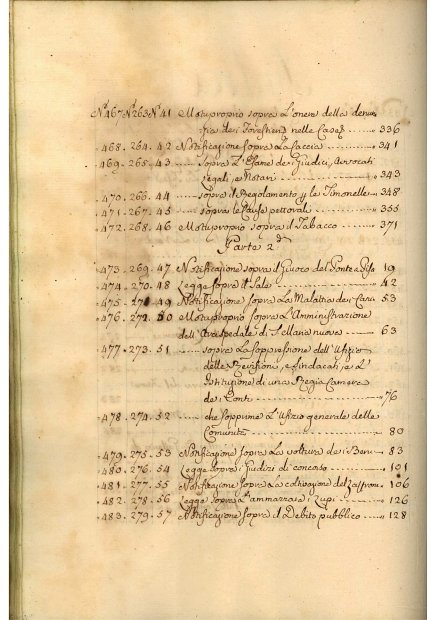 N.467 N.263 N.41 Motuproprio sopra L'onere della denun
zia dei Forestieri nelle Case 336
468. 264. 42 Notificazione sopra La Caccia 341
469. 265. 43 sopra L'Esame dei Giudici, Avvocati
Legali, e Notari 343
470. 266. 44 sopra il Regolamento p le Timonelle 348
471. 267. 45 sopra le Cause pettorali 355
472. 268. 46 Motuproprio sopra il Tabacco 371
Parte 2.
473. 269. 47 Notificazione sopra il Giuoco del Ponte a Pisa 19
474. 270. 48 Legge sopra il Sale 42
475. 271 49 Notificazione sopra La Malattia dei Cani 53
476. 272. 50 Motuproprio sopra L'Amministrazione
dell'Arcispedale di S. Maria nuova 63
477. 273. 51 sopra La Soppressione dell'Ufizio
delle Revisioni, e Sindacati, e L
Istituzione di una Regia Camera
dei Conti 76
478. 274. 52 che sopprime L'Ufizio generale delle
Comunità 80
479. 275. 53 Notificazione sopra La voltura dei Beni 83
480. 276. 54 Legge sopra i Giudizi di concorso 101
481. 277. 55 Notificazione sopra La coltivazione del Zafferano 106
482. 278. 56 Legge sopra L'ammazzare i Lupi 126
483. 279. 57 Notificazione sopra il Debito pubblico 128